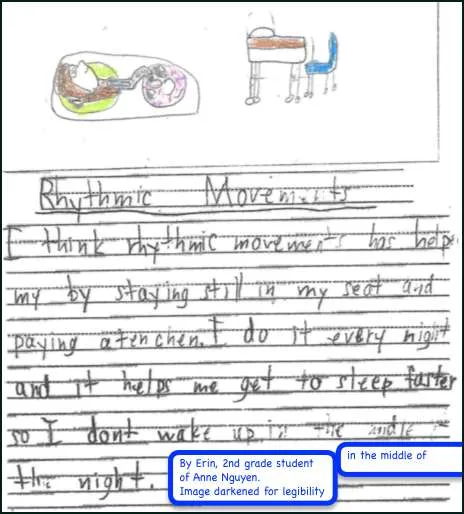 Rhythmic Movements
I think rhythmic movements has helpe
my by staying still in my seat and
paying atenchen. I do it every night
and it helps me get to sleep faster
so I dont wake up in the middle
in the middle of
the night.
By Erin, 2nd grade student
of Anne Nguyen.
Image darkened for legibility